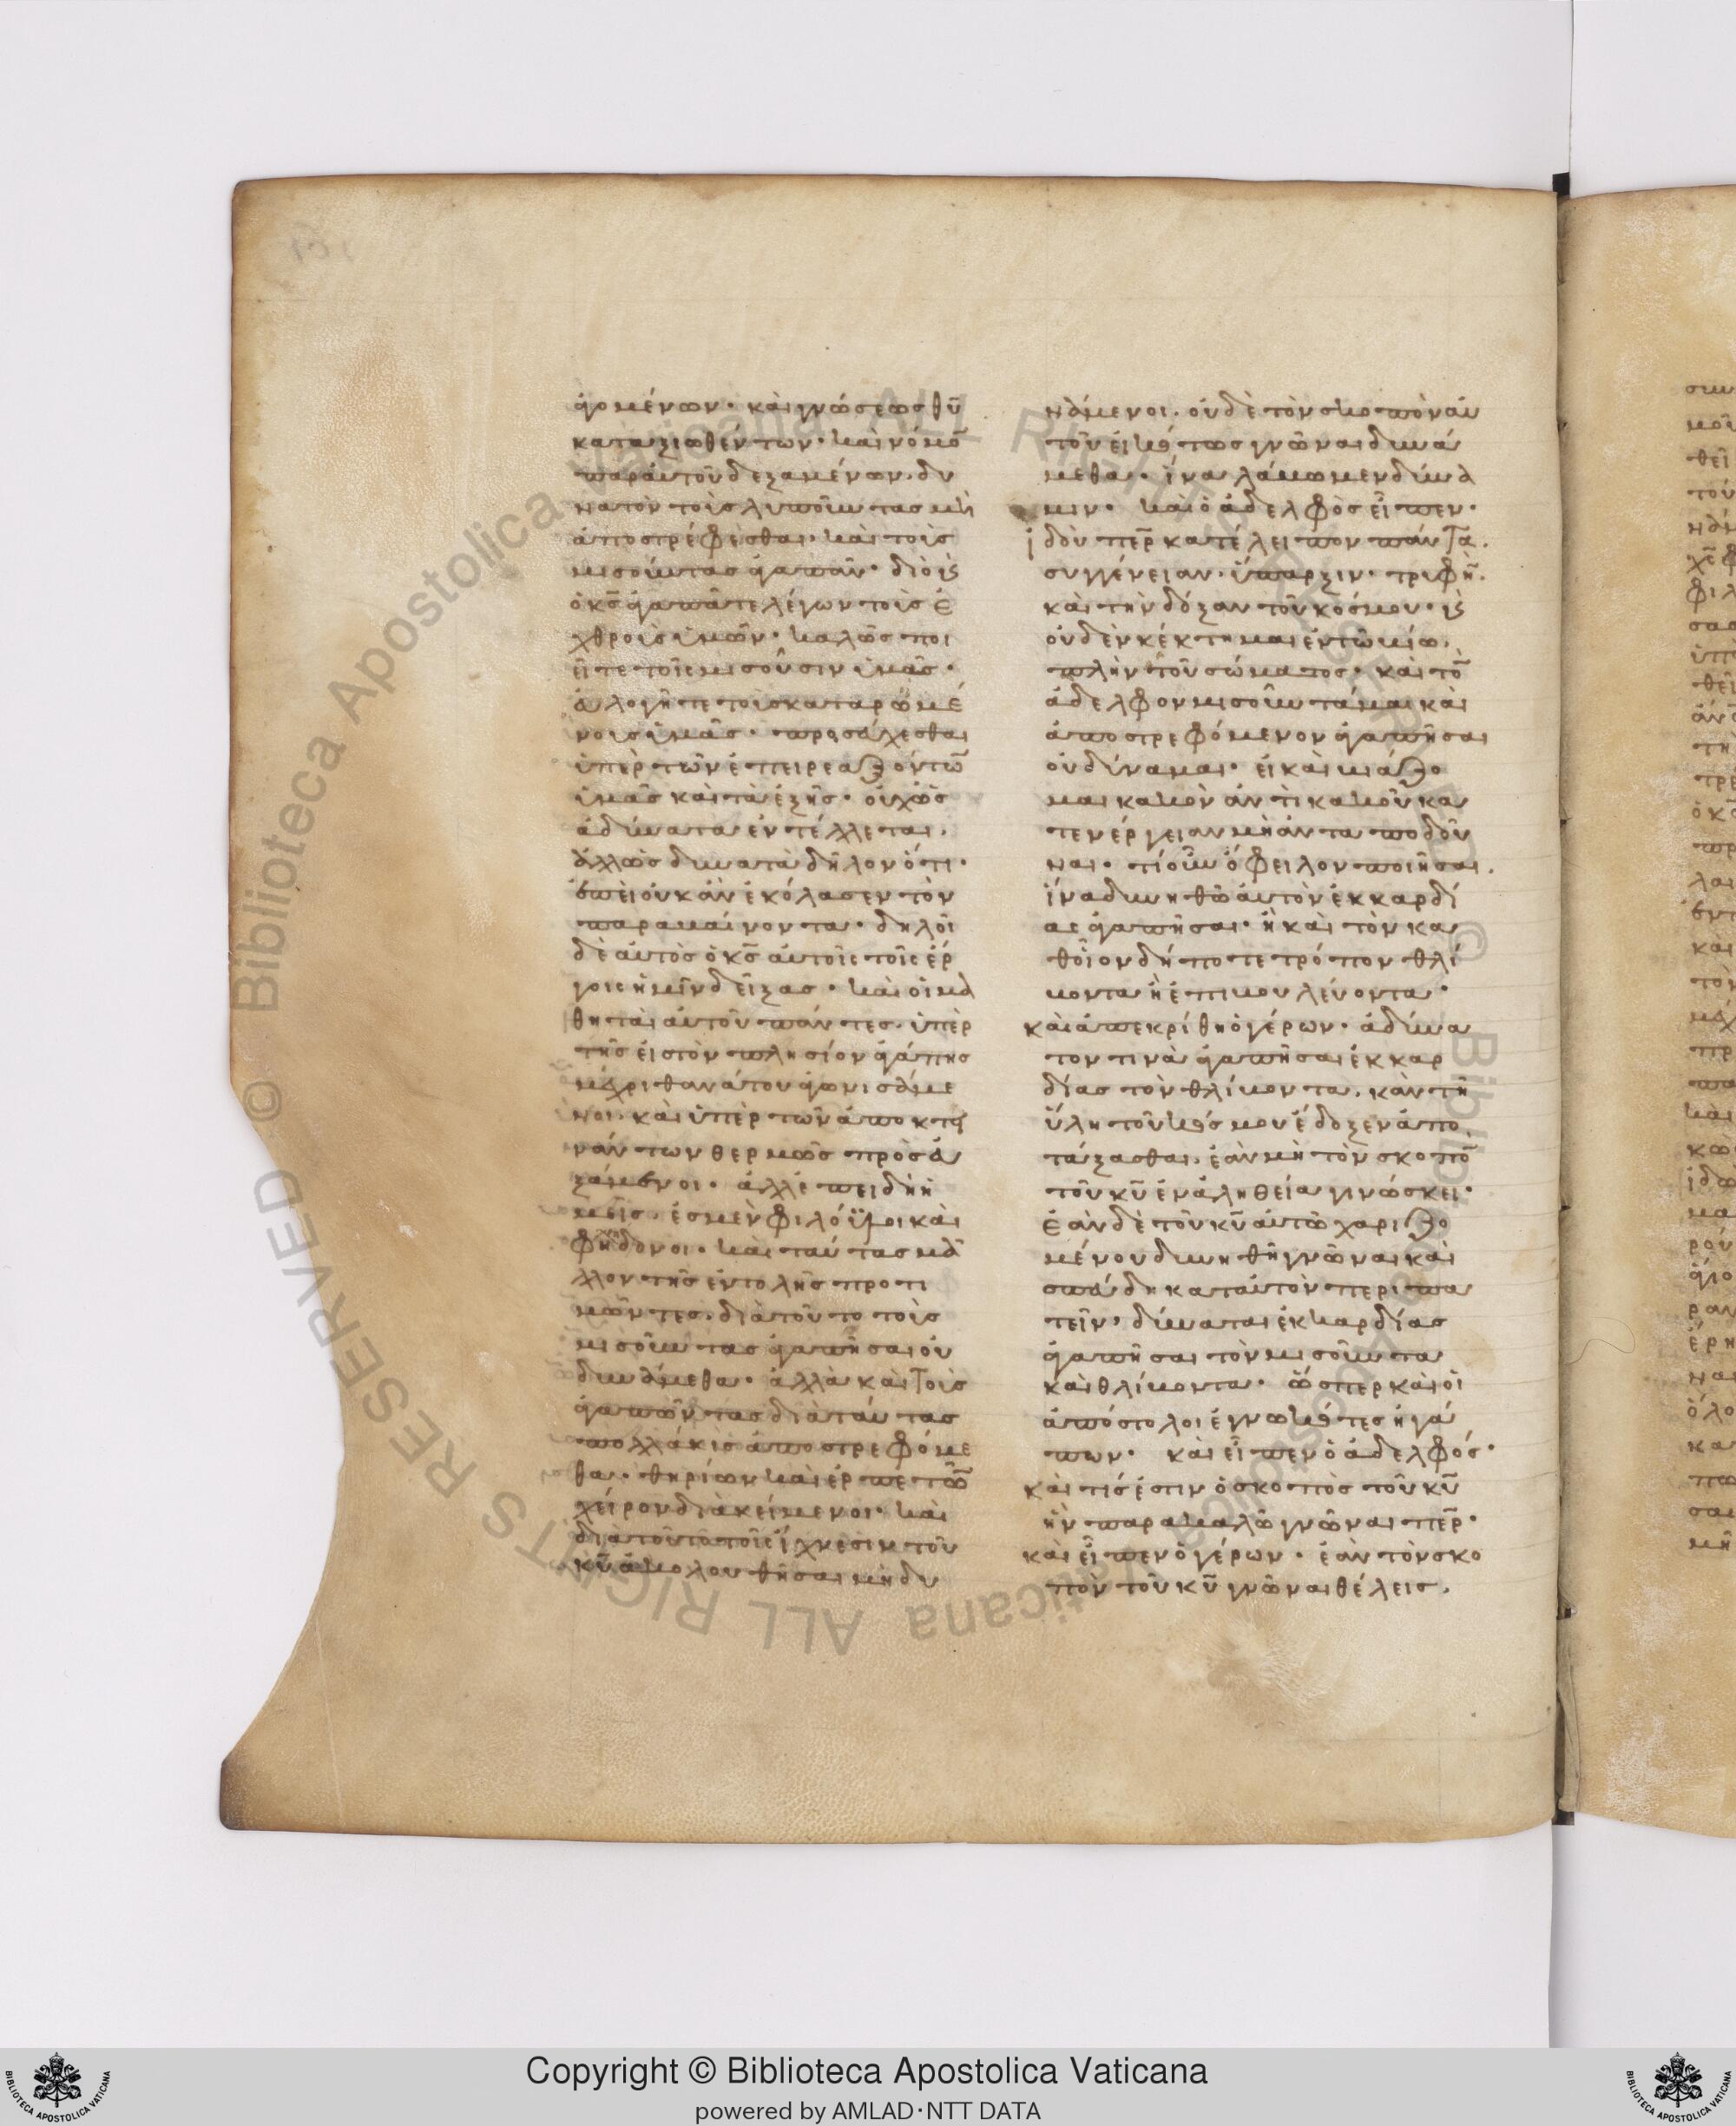 γομένων· καὶ γνώσεως θῡ
καταξιωθέντων· καὶ νόμο̄
παραυτοῦ δεξαμένων· δυ
νατὸν τοὺς λυποῦντας μὴ
ἀποστρέφεσθαι· καὶ τοὺς
μισοῦντας ἀγαπᾶν· διὸ κ̀
ὁ κ̄ς ἀγαπᾶτε λέγων τοὺς ἐ
χθροὺς ὑμῶν· καλῶς ποι
εῖτε τοῖς μισοῦσιν ὑμᾶς·
εὐλογεῖτε τοὺς καταρωμέ
νους ὑμᾶς· προσεύχεσθαι
ὑπὲρ τῶν ἐπειρεαζόντω̄
ὑμᾶς καὶ τὰ ἑξῆς· οὐχ ὡς
ἀδύνατα ἐντέλλεται·
ἀλλ' ὡς δυνατὰ δῆλον ὅτι·
ἐπεὶ οὐκ ἂν ἐκόλασεν τὸν
παραβαίνοντα· δηλοῖ
δὲ αὐτὸς ὁ κ̄ς αὐτοῖς τοῖς ἔρ
γοις ἡμῖν δείξας· καὶ οἱ μα
θηταὶ αὐτοῦ πάντες· ὑπὲρ
τῆς εἰς τὸν πλησίον ἀγάπης
μέχρι θανάτου ἀγωνισάμε
νοι· καὶ ὑπὲρ τῶν ἀποκτει
νάντων θερμῶς προσευ
ξάμενοι· ἀλλ' ἐπειδὴ ἡ
μεῖς ἐσμὲν φιλόϋλοι καὶ
φιλήδονοι· καὶ ταύτας μᾶ
λλον τῆς ἐντολῆς προτι
μῶντες· διὰ τοῦτο τοὺς
μισοῦντας ἀγαπῆσαι οὐ
δυνάμεθα· ἀλλὰ καὶ τοὺς
ἀγαπῶντας διὰ ταύτας
πολλάκις ἀποστρεφόμε
θα· θηρίων καὶ ἑρπετῶ̄
χεῖρον διακείμενοι· καὶ
διὰ τοῦτο τοῖς ἴχνεσιν τοῦ
κῡ ἀκολουθῆσαι μὴ δυ
νάμενοι· οὐδὲ τὸν σκοπὸν αὐ
τοῦ εἰκότως γνῶναι δυνά
μεθα· ἵνα λάβωμεν δύνα
μιν· καὶ ὁ ἀδελφὸς εἶπεν·
ἰδοὺ πε̄ρ κατέλειπον πάντα·
συγγένειαν· ὕπαρξιν· τρυφὴ̄·
καὶ τὴν δόξαν τοῦ κόσμου· κ̀
οὐδὲν κέκτημαι ἐν τῶ βίω·
πλὴν τοῦ σώματος· καὶ τὸ̄
ἀδελφὸν μισοῦντά με καὶ
ἀποστρεφόμενον ἀγαπῆσαι
οὐ δύναμαι· εἰ καὶ βιάζο
μαι κακὸν ἀντὶ κακοῦ κα
τενέργειαν μὴ ἀνταποδοῦ
ναι· τί οὖν ὄφειλον ποιῆσαι·
ἵνα δυνηθῶ αὐτὸν ἐκ καρδί
ας ἀγαπῆσαι· ἢ καὶ τὸν κα
θοῖον δήποτε τρόπον θλί
βοντα ἢ ἐπιβουλεύοντα·
καὶ ἀπεκρίθη ὁ γέρων· ἀδύνα
τον τινὰ ἀγαπῆσαι ἐκ καρ
δίας τὸν θλίβοντα· κἂν τῆ
ὕλη τοῦ κόσμου ἔδοξεν ἀπο
τάξασθαι· ἐὰν μὴ τὸν σκοπὸ̄
τοῦ κῡ ἐν ἀληθεία γινώσκει·
ἐὰν δὲ τοῦ κῡ αὐτῶ χαριζο
μένου δυνηθῆ γνῶναι καὶ
σπεύδη κατ' αὐτὸν περιπα
τεῖν· δύναται ἐκ καρδίας
ἀγαπῆσαι τὸν μισοῦντα
καὶ θλίβοντα· ὥσπερ καὶ οἱ
ἀπόστολοι ἐγνωκότες ἠγά
πων· καὶ εἶπεν ὁ ἀδελφός·
καὶ τίς ἐστιν ὁ σκοπὸς τοῦ κῡ
ἦν παρακαλῶ γνῶναι πε̄ρ·
καὶ εἶπεν ὁ γέρων· ἐὰν τὸν σκο
πὸν τοῦ κῡ γνῶναι θέλεις·
© Biblioteca Apostolica Vaticana ALL RIGHTS RESERVED
© Biblioteca Apostolica Vaticana ALL RIGHTS RESERVED
Copyright © Biblioteca Apostolica Vaticana
powered by AMLAD·NTT DATA
BIBLIOTECA APOSTOLICA VATICANA
BIBLIOTECA APOSTOLICA VATICANA